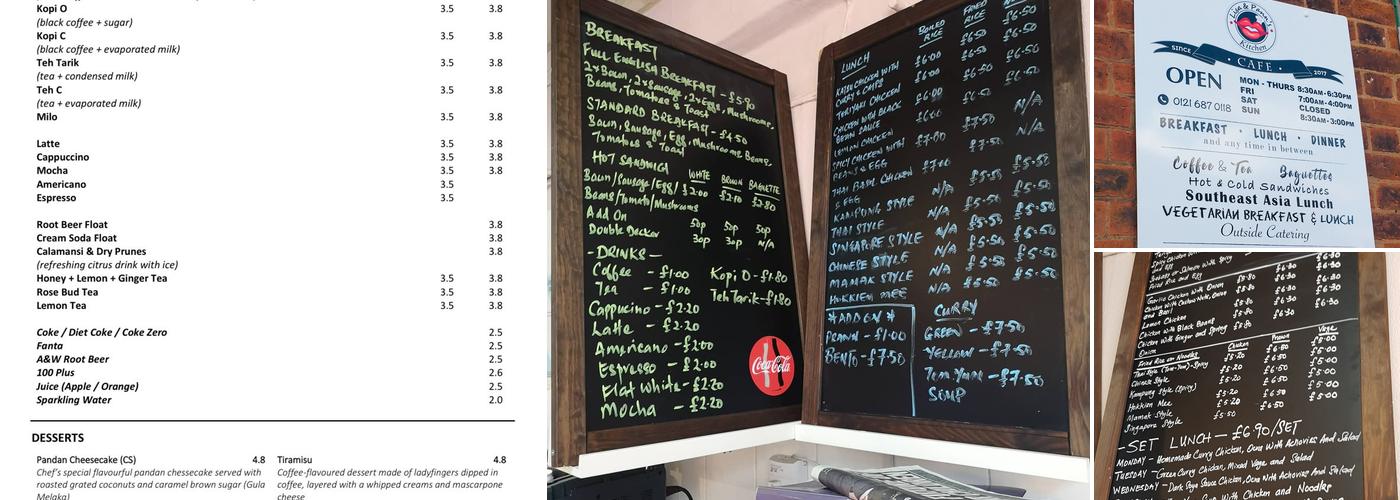 Kopi O 3.5 3.8
(black coffee + sugar)
Kopi C 3.5 3.8
(black coffee + evaporated milk)
Teh Tarik 3.5 3.8
(tea + condensed milk)
Teh C 3.5 3.8
(tea + evaporated milk)
Milo 3.5 3.8
Latte 3.5 3.8
Cappucino 3.5 3.8
Mocha 3.5 3.8
Americano 3.5
Espresso 3.5
Root Beer Float 3.8
Cream Soda Float 3.8
Calamansi & Dry Prunes 3.8
(refreshing citrus drink with ice)
Honey + Lemon + Ginger Tea 3.5 3.8
Rose Bud Tea 3.5 3.8
Lemon Tea 3.5 3.8
Coke / Diet Coke / Coke Zero 2.5
Fanta 2.5
A&W Root Beer 2.5
100 Plus 2.6
Juice (Apple / Orange) 2.5
Sparkling Water 2.0
DESSERTS
Pandan Cheesecake (CS) 4.8
Chef's special flavourful pandan chessecake served with
roasted grated coconuts and caramel brown sugar (Gula
Melaka)
Tiramisu 4.8
Coffee-flavoured dessert made of ladyfingers dipped in
coffee, layered with a whipped creams and mascarpone
cheese
BREAKFAST
FULL ENGLISH BREAKFAST - £5.90
2x Bacon, 2x Sausage, 2x Eggs, Mushrooms,
Beans, Tomatoes & Toast
STANDARD BREAKFAST - £4.50
Bacon, Sausage, Egg, Mushrooms Beans,
Tomatoes & Toast
HOT SANDWICH WHITE BROWN BAGUETTE
Bacon/Sausage/Egg/ £2.00 £2.10 £2.80
Beans/Tomato/Mushrooms
Add On 50p 50p 50p
Double Decker 30p 30p N/A
- DRINKS -
Coffee - £1.00 Kopi O - £1.80
Tea - £1.00 Teh Tarik - £1.80
Cappucino - £2.20
Latte - £2.20
Americano - £2.00
Espresso - £2.00
Flat White - £2.20
Mocha - £2.20
Coca-Cola
LUNCH BOILED RICE FRIED RICE
KATSU CHICKEN WITH £6.00 £6.50 £6.50
CURRY & CHIPS
TERIYAKI CHICKEN £6.00 £6.50 £6.50
CHICKEN WITH BLACK £6.00 £6.50 £6.50
BEAN SAUCE
LEMON CHICKEN £6.00 £6.50 N/A
SPICY CHICKEN WITH £7.00 £7.50 N/A
BEANS & EGG
THAI BASIL CHICKEN £7.00 £7.50
& EGG
KAMPUNG STYLE N/A £5.50 £5.50
THAI STYLE N/A £5.50 £5.50
SINGAPORE STYLE N/A £5.50 £5.50
CHINESE STYLE N/A £5.50 £5.50
MAMAK STYLE N/A £5.50 £5.50
HOKKIEN MEE N/A £5.50 £5.50
*ADD ON*
PRAWN - £1.00
BENTO - £7.50
CURRY
GREEN - £7.50
YELLOW - £7.50
Tom Yum - £7.50
SOUP
Lisa & Pann's
Kitchen
SINCE · CAFE · 2017
OPEN
0121 687 0118
MON - THURS 8:30AM-6:30PM
FRI 7:00AM-4:00PM
SAT CLOSED
SUN 8:30AM-3:00PM
BREAKFAST · LUNCH · DINNER
and any time in between
Coffee & Tea Baguettes
Hot & Cold Sandwiches
Southeast Asia Lunch
VEGETARIAN BREAKFAST & LUNCH
Outside Catering
Fried Rice and Egg
Garlic Chicken with Onion £5.80 £6.30
and Basil
Lemon Chicken
Chicken with Black Beans
Chicken with Ginger and Spring
Onion
Fried Rice or Noodles Chicken Prawn Vege
Thai Style (Tom-Yum)-Spicy £5.20 £6.50 £5.00
Chinese Style £5.20 £6.50 £5.00
Kampung Style (Spicy) £5.20 £6.50 £5.00
Hokkien Mee £5.20 £6.50 £5.00
Mamak Style
Singapore Style
- SET LUNCH - £6.90/SET
MONDAY - Homemade Curry Chicken, Ocra With Achovies And Salad
TUESDAY - Green Curry Chicken, Mixed Vege and Salad
WEDNESDAY - Dark Soya Sauce Chicken, Ocra With Achovies And Salad
With Chicken and Noodles